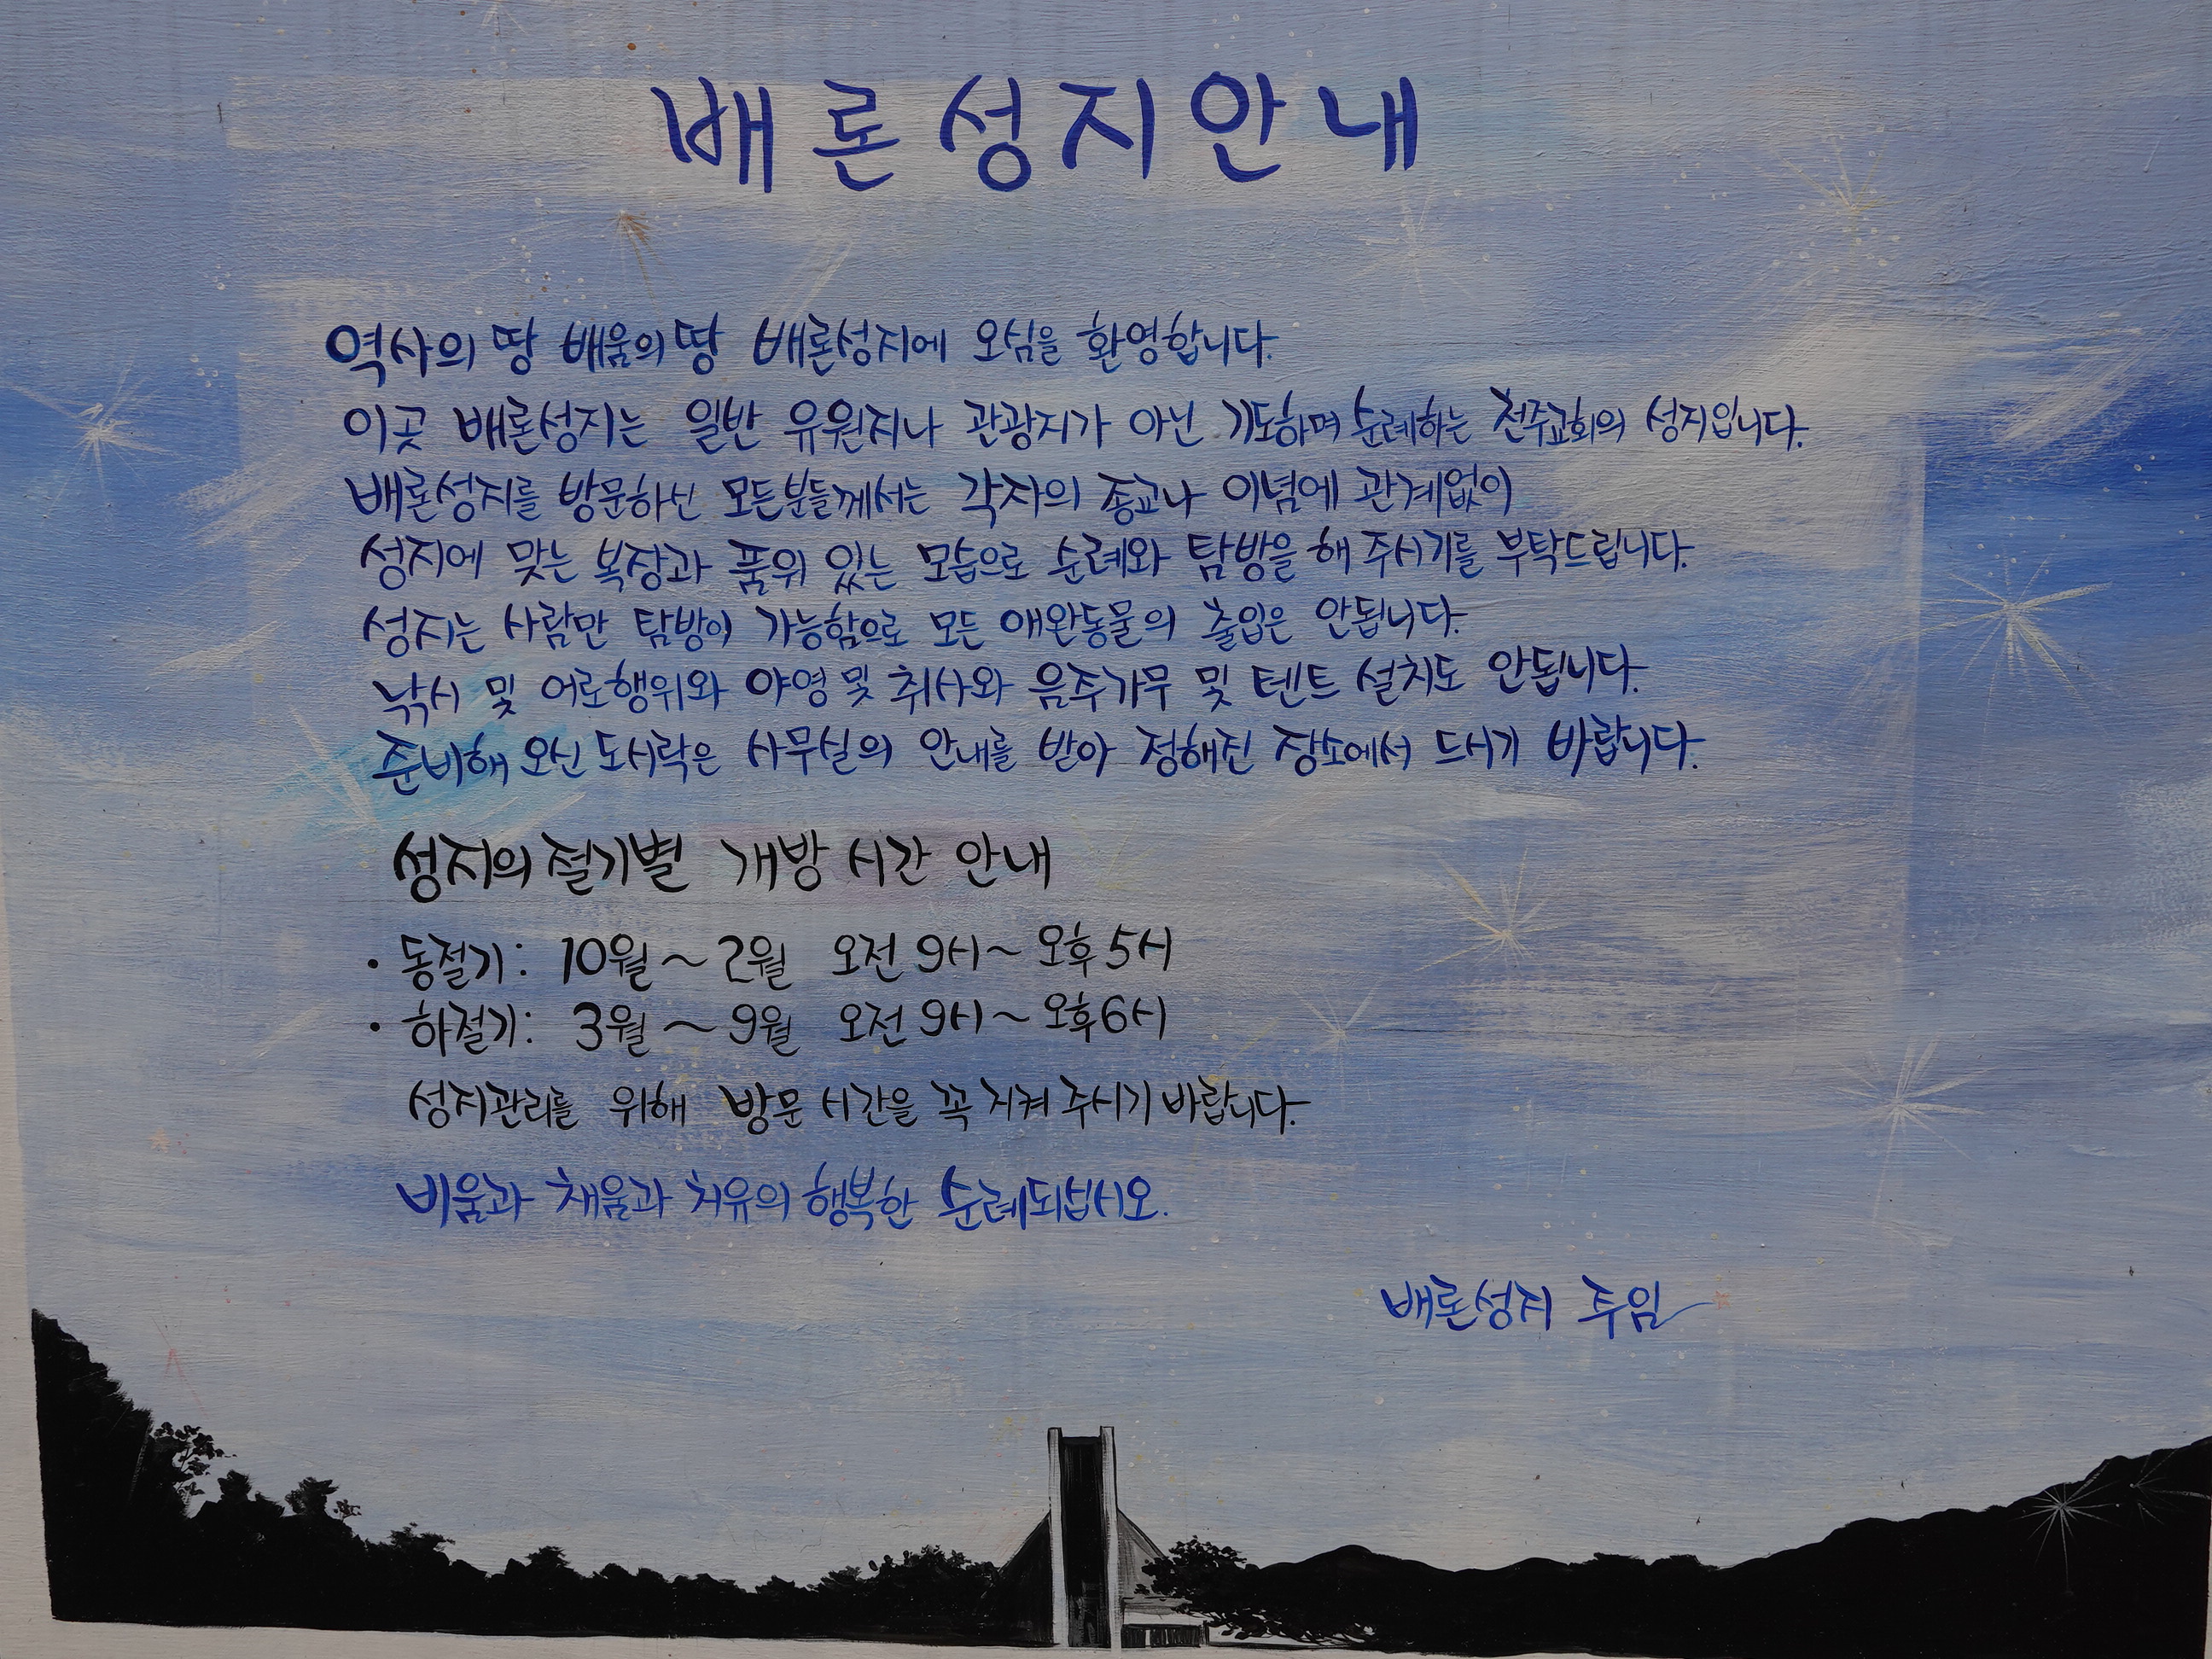 배론성지안내
역사의 땅 배움의 땅 배론성지에 오심을 환영합니다.
이곳 배론성지는 일반 유원지나 관광지가 아닌 기도하며 순례하는 천주교회의 성지입니다.
배론성지를 방문하신 모든분들께서는 각자의 종교나 이념에 관계없이
성지에 맞는 복장과 품위 있는 모습으로 순례와 탐방을 해 주시기를 부탁드립니다.
성지는 사람만 탐방이 가능함으로 모든 애완동물의 출입은 안됩니다.
낚시 및 어로행위와 야영 및 취사와 음주가무 및 텐트 설치도 안됩니다.
준비해 오신 도시락은 사무실의 안내를 받아 정해진 장소에서 드시기 바랍니다.
성지의 절기별 개방 시간 안내
• 동절기: 10월~2월 오전 9시~오후 5시
• 하절기: 3월~9월 오전 9시~오후 6시
성지관리를 위해 방문 시간을 꼭 지켜 주시기 바랍니다.
비움과 채움과 치유의 행복한 순례되십시오.
배론성지 주임